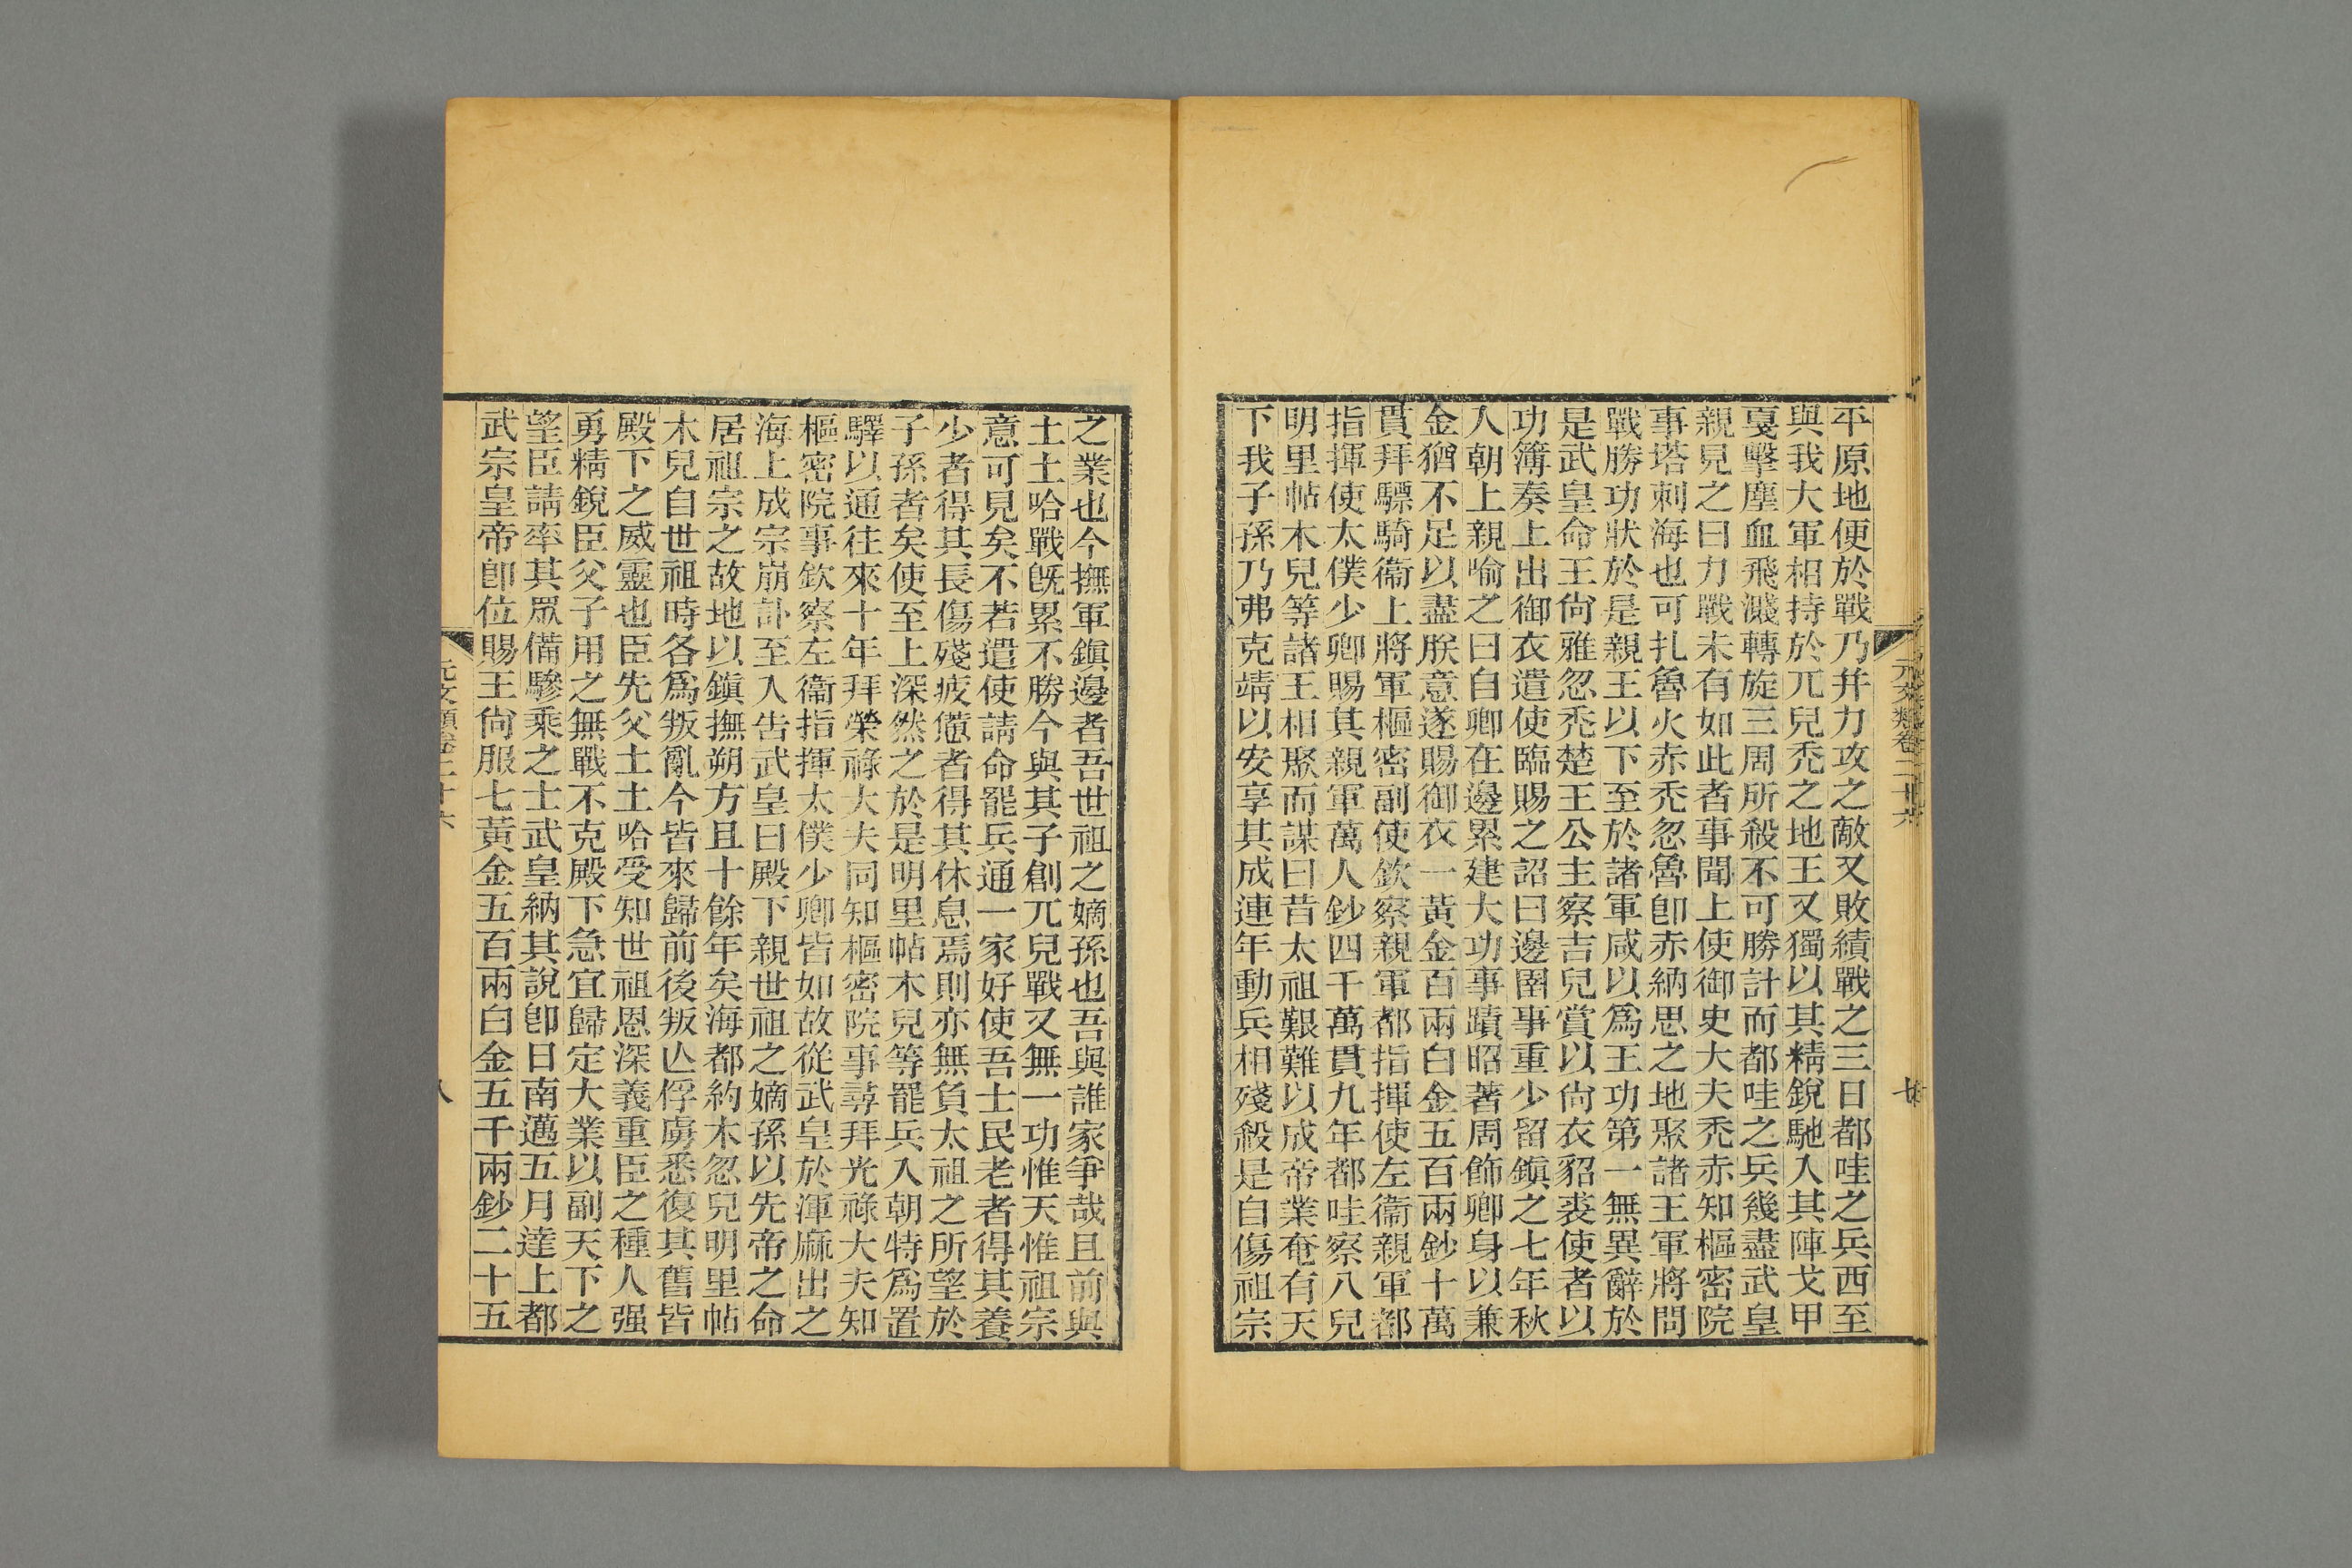 平原地便於戰乃幷力攻之敵又敗績戰之三日都哇之兵西至
與我大軍相持於兀兒禿之地王又獨以其精銳馳入其陣戈甲
戛擊塵血飛濺轉旋三周所殺不可勝計而都哇之兵幾盡武皇
親見之曰力戰未有如此者事聞上使御史大夫禿赤知樞密院
事塔刺海也可扎魯火赤禿忽魯卽赤納思之地聚諸王軍將問
戰勝功狀於是親王以下至於諸軍咸以爲王功第一無異辭於
是武皇命王尙雅忽禿楚王公主察吉兒賞以尙衣貂裘使者以
功簿奏上出御衣遣使臨賜之詔曰邊圉事重少留鎭之七年秋
入朝上親喻之曰自卿在邊累建大功事蹟昭著周飾卿身以兼
金猶不足以盡朕意遂賜御衣一黃金百兩白金五百兩鈔十萬
貫拜驃騎衞上將軍樞密副使欽察親軍都指揮使左衞親軍都
指揮使太僕少卿賜其親軍萬人鈔四千萬貫九年都哇察八兒
明里帖木兒等諸王相聚而謀曰昔太祖艱難以成帝業奄有天
下我子孫乃弗克靖以安享其成連年動兵相殘殺是自傷祖宗
元文類卷二十六
之業也今撫軍鎭邊者吾世祖之嫡孫也吾與誰家爭哉且前與
土土哈戰旣累不勝今與其子創兀兒戰又無一功惟天惟祖宗
意可見矣不若遣使請命罷兵通一家好使吾士民老者得其養
少者得其長傷殘疲憊者得其休息焉則亦無負太祖之所望於
子孫者矣使至上深然之於是明里帖木兒等罷兵入朝特爲置
驛以通往來十年拜榮祿大夫同知樞密院事尋拜光祿大夫知
樞密院事欽察左衞指揮太僕少卿皆如故從武皇於渾麻出之
海上成宗崩訃至入告武皇曰殿下親世祖之嫡孫以先帝之命
居祖宗之故地以鎭撫朔方且十餘年矣海都約木忽兒明里帖
木兒自世祖時各爲叛亂今皆來歸前後叛亾俘虜悉復其舊皆
殿下之威靈也臣先父土土哈受知世祖恩深義重臣之種人强
勇精銳臣父子用之無戰不克殿下急宜歸定大業以副天下之
望臣請率其眾備驂乘之士武皇納其說卽日南邁五月達上都
武宗皇帝卽位賜王尙服七黃金五百兩白金五千兩鈔二十五
元文類卷二十六
八